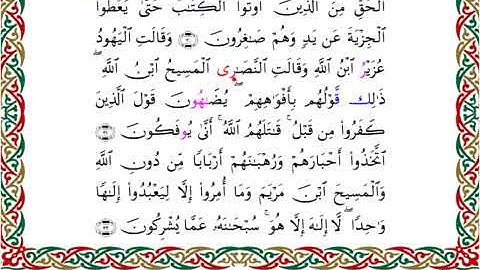 ٱلۡحَقِّ مِنَ ٱلَّذِينَ أُوتُواْ ٱلۡكِتَٰبَ حَتَّىٰ يُعۡطُواْ
ٱلۡجِزۡيَةَ عَن يَدٖ وَهُمۡ صَٰغِرُونَ ۝ وَقَالَتِ ٱلۡيَهُودُ
عُزَيۡرٌ ٱبۡنُ ٱللَّهِ وَقَالَتِ ٱلنَّصَٰرَى ٱلۡمَسِيحُ ٱبۡنُ ٱللَّهِۖ
ذَٰلِكَ قَوۡلُهُم بِأَفۡوَٰهِهِمۡۖ يُضَٰهُونَ قَوۡلَ ٱلَّذِينَ
كَفَرُواْ مِن قَبۡلُۚ قَٰتَلَهُمُ ٱللَّهُۚ أَنَّىٰ يُوفَكُونَ ۝
ٱتَّخَذُوٓاْ أَحۡبَارَهُمۡ وَرُهۡبَٰنَهُمۡ أَرۡبَابٗا مِّن دُونِ ٱللَّهِ
وَٱلۡمَسِيحَ ٱبۡنَ مَرۡيَمَ وَمَآ أُمِرُوٓاْ إِلَّا لِيَعۡبُدُوٓاْ إِلَٰهٗا
وَٰحِدٗاۖ لَّآ إِلَٰهَ إِلَّا هُوَۚ سُبۡحَٰنَهُۥ عَمَّا يُشۡرِكُونَ ۝